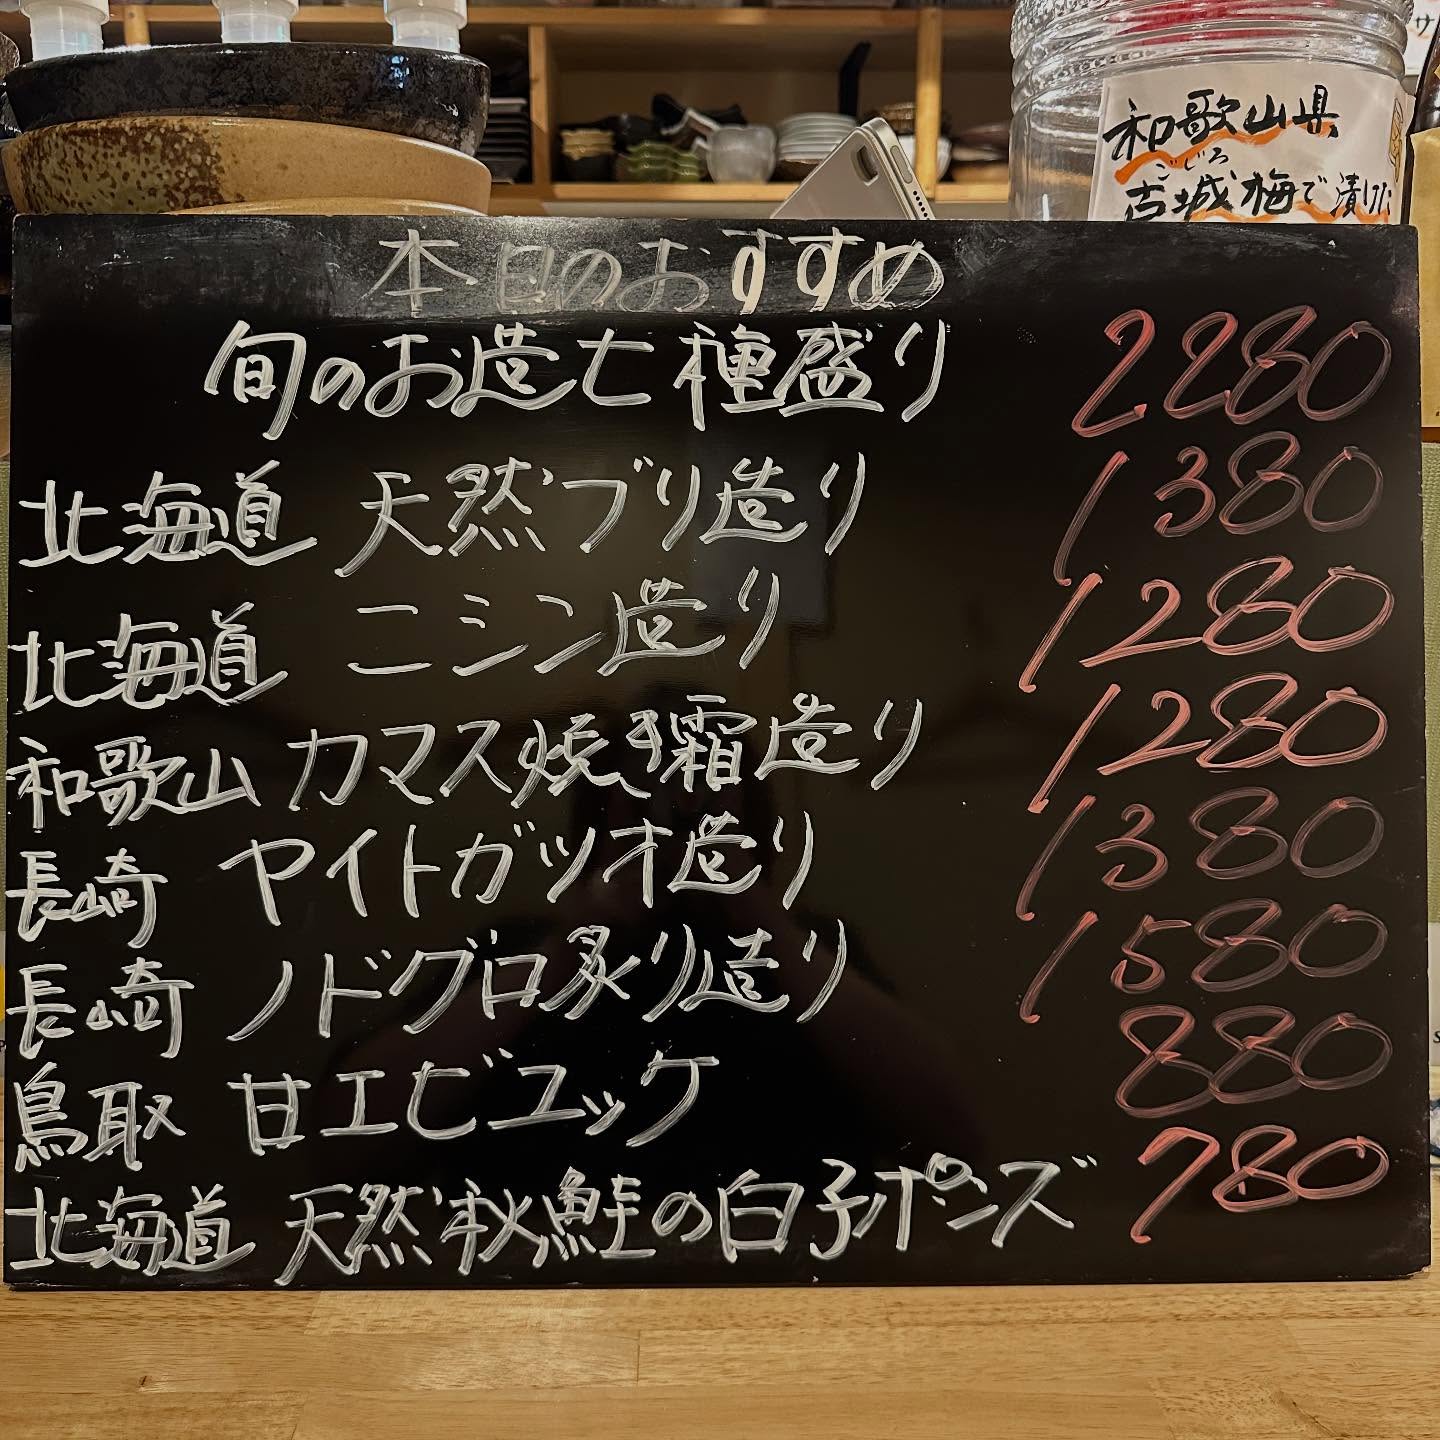 和歌山県
ごじろ
古城梅で漬けた
本日のおすすめ
旬のお造七種盛り 2280
北海道 天然ブリ造り 1380
北海道 ニシン造り 1280
和歌山 カマス焼き霜造り 1280
長崎 ヤイトガツオ造り 1380
長崎 ノドグロ炙り造り 1580
鳥取 甘エビユッケ 880
北海道 天然秋鮭の白子ポンズ 780